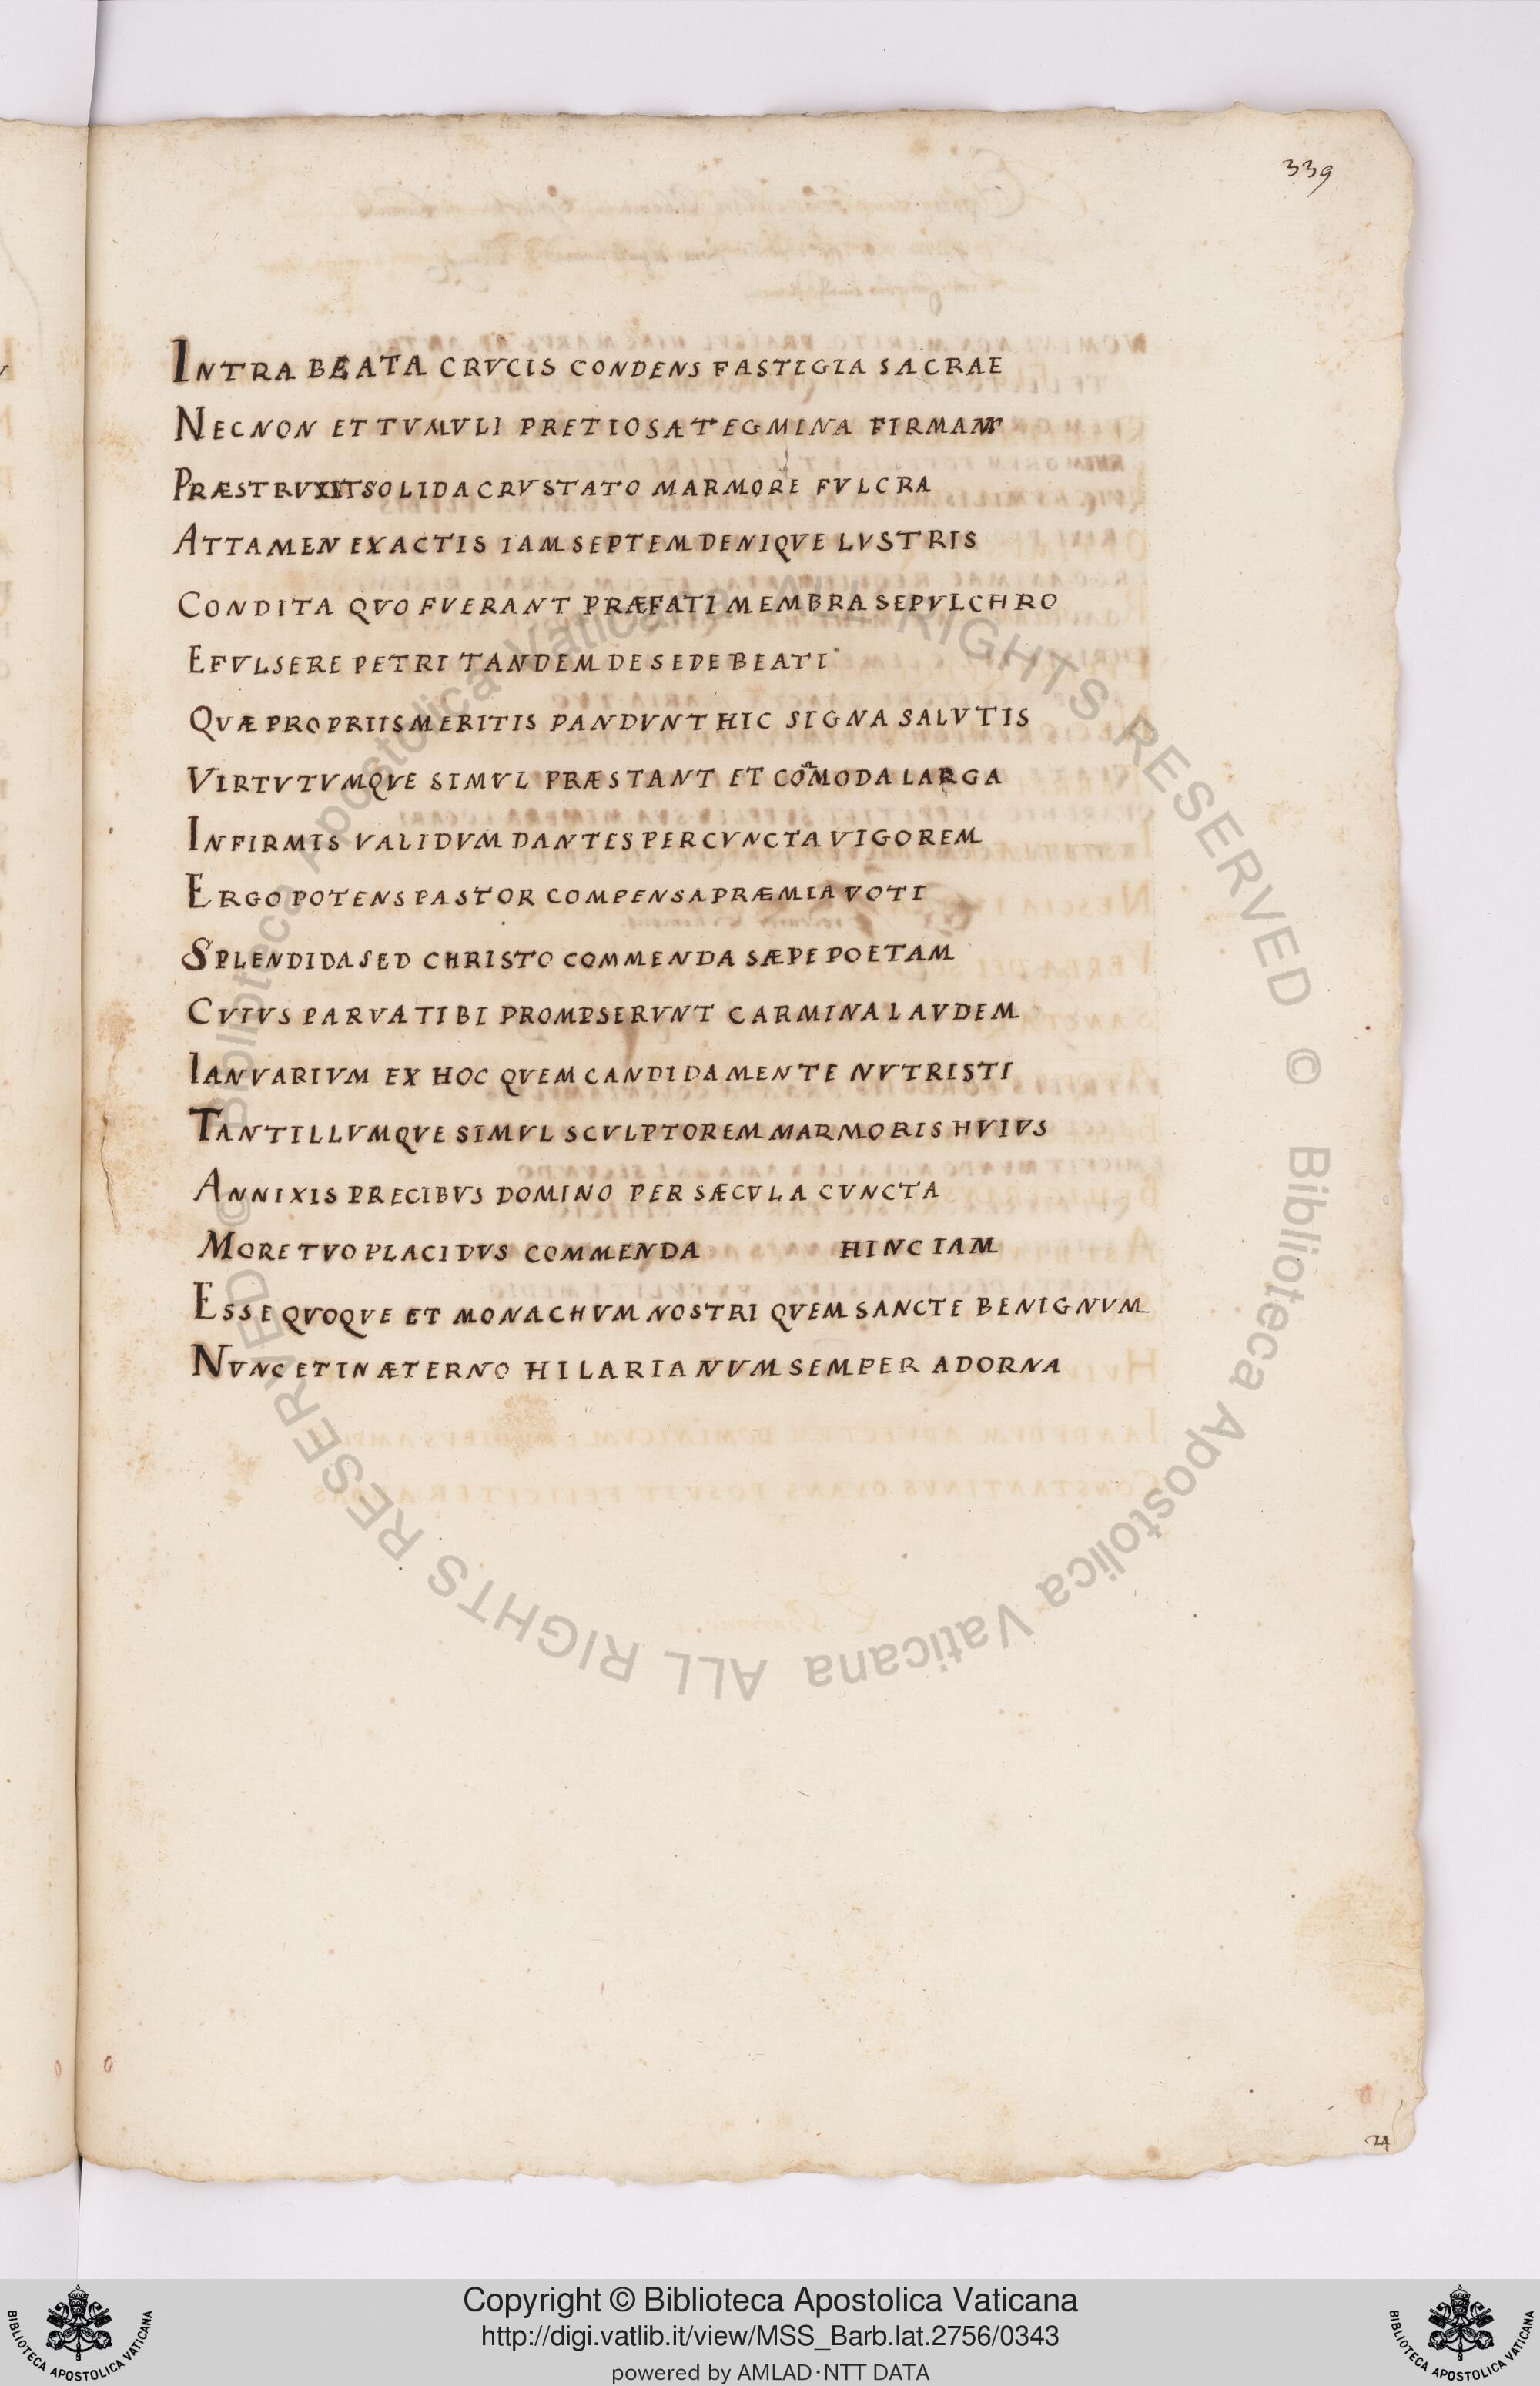 339
INTRA BEATA CRVCIS CONDENS FASTIGIA SACRAE
NECNON ET TVMVLI PRETIOSA TEGMINA FIRMANS
PRÆSTRVXIT SOLIDA CRVSTATO MARMORE FVLCRA
ATTAMEN EXACTIS IAM SEPTEM DENIQVE LVSTRIS
CONDITA QVO FVERANT PRÆFATI MEMBRA SEPVLCHRO
EFVLSERE PETRI TANDEM DE SEDE BEATI
QVÆ PROPRIIS MERITIS PANDVNT HIC SIGNA SALVTIS
VIRTVTVMQVE SIMVL PRÆSTANT ET CO͞MODA LARGA
INFIRMIS VALIDVM DANTES PER CVNCTA VIGOREM
ERGO POTENS PASTOR COMPENSA PRÆMIA VOTI
SPLENDIDA SED CHRISTO COMMENDA SÆPE POETAM
CVIVS PARVA TIBI PROMPSERVNT CARMINA LAVDEM
IANVARIVM EX HOC QVEM CANDIDA MENTE NVTRISTI
TANTILLVMQVE SIMVL SCVLPTOREM MARMORIS HVIVS
ANNIXIS PRECIBVS DOMINO PER SÆCVLA CVNCTA
MORE TVO PLACIDVS COMMENDA HINC IAM
ESSE QVOQVE ET MONACHVM NOSTRI QVEM SANCTE BENIGNVM
NVNC ET IN ÆTERNO HILARIANVM SEMPER ADORNA
24
© Biblioteca Apostolica Vaticana ALL RIGHTS RESERVED © Biblioteca Apostolica Vaticana ALL RIGHTS RESERVED
BIBLIOTECA APOSTOLICA VATICANA
Copyright © Biblioteca Apostolica Vaticana
http://digi.vatlib.it/view/MSS_Barb.lat.2756/0343
powered by AMLAD·NTT DATA
BIBLIOTECA APOSTOLICA VATICANA